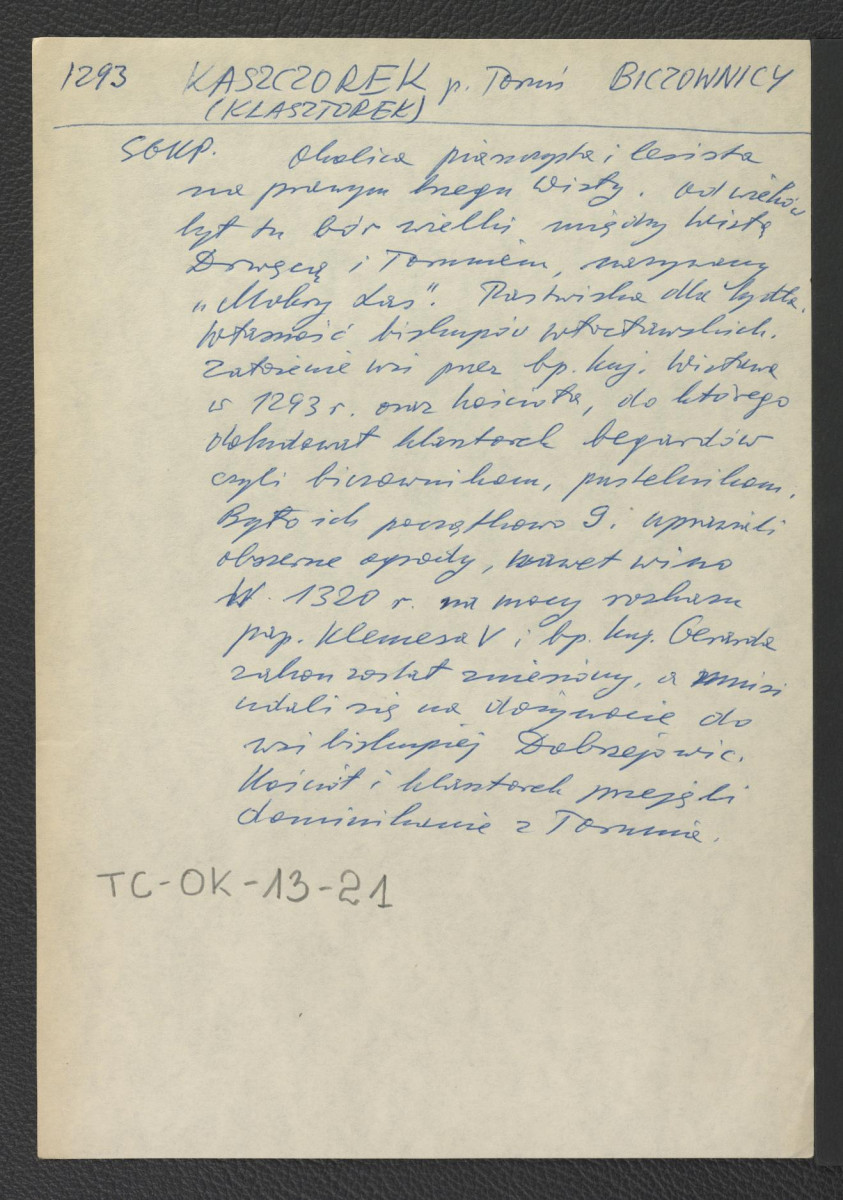 1293 KASZCZOREK p. Toruń BICZOWNICY
(KLASZTOREK)
SGKP. Okolica piaszczysta i lesista
na prawym brzegu Wisły. Od wieków
był tu bór wielki między Wisłą
Drwęcą i Toruniem, nazywany
„Mokry Las". Pastwiska dla bydła.
Własność biskupów włocławskich.
Założenie wsi przez bp. kuj. Wisława
w 1293 r. oraz kościoła, do którego
dobudował klasztorek begardów
czyli biczownikom, pustelnikom.
Było ich początkowo 9 i uprawiali
obszerne ogrody, nawet wino
W. 1320 r. na mocy rozkazu
pap. Klemesa V i bp. kuj. Gerarda
zakon został zniesiony, a mnisi
udali się na dożywocie do
wsi biskupiej Dobrzejowic.
Kościół i klasztorek przejęli
dominikanie z Torunia.
TC-OK-13-21